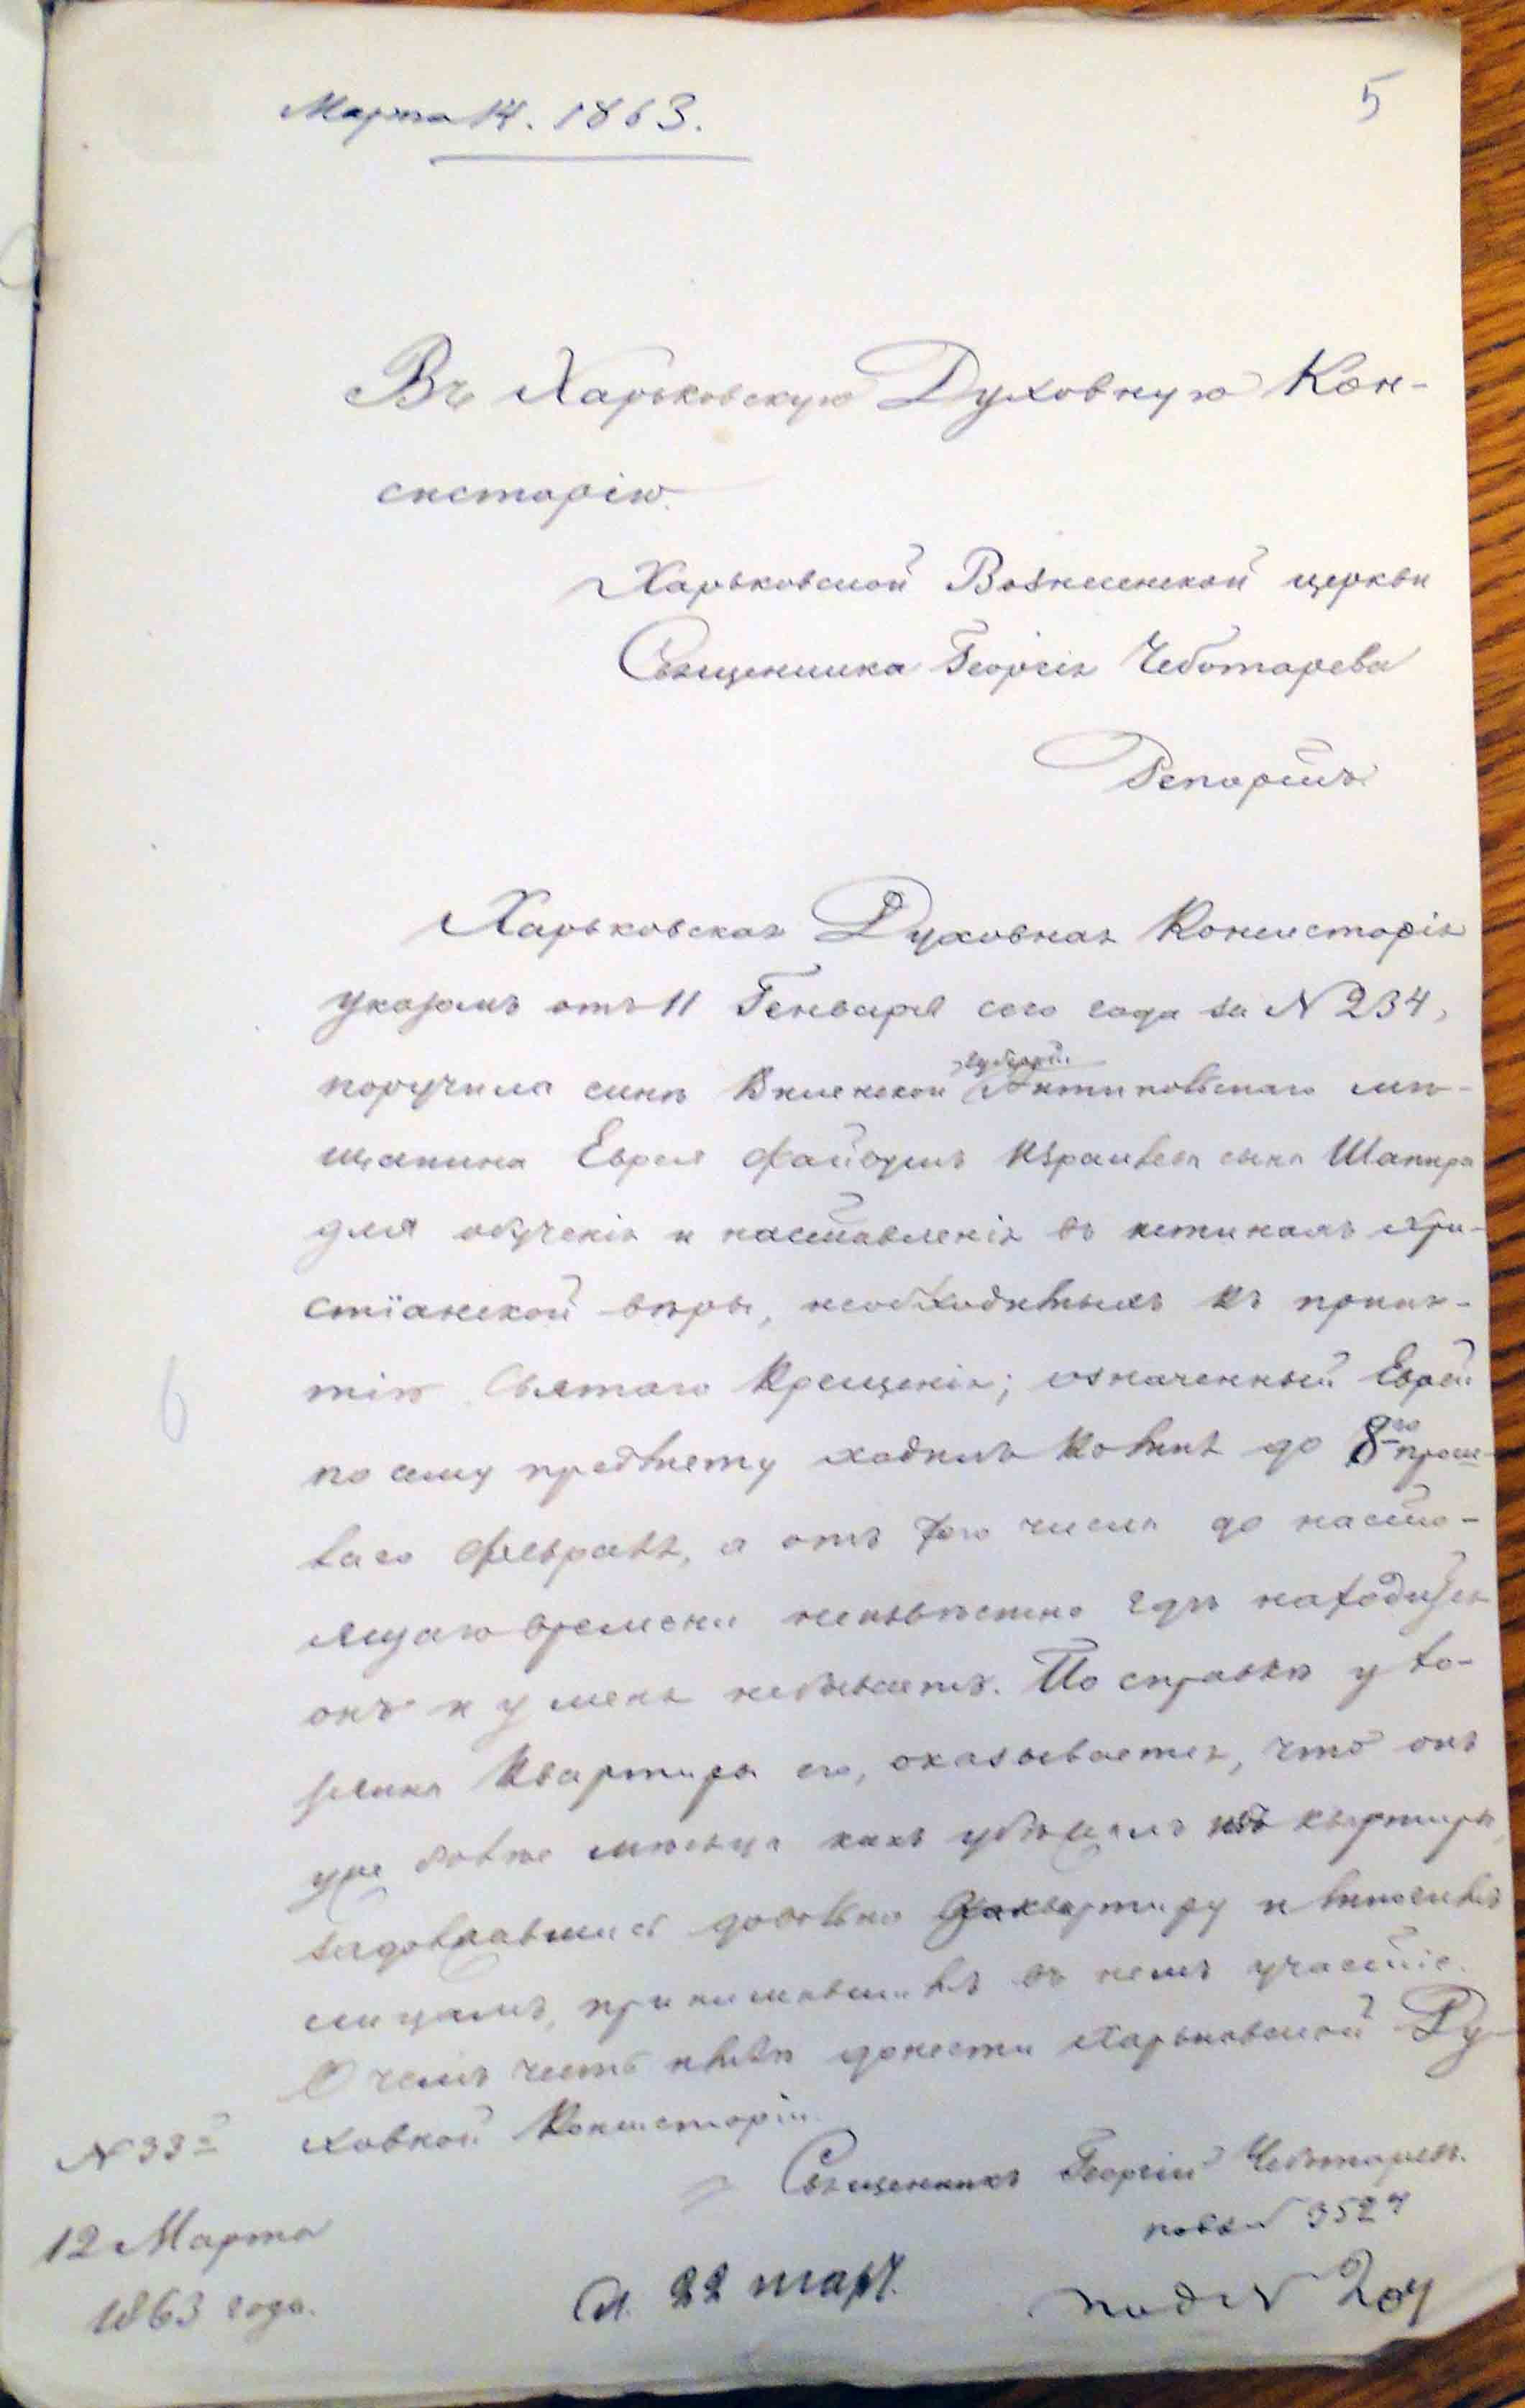 Марта 14. 1863.
5
Въ Харьковскую Духовную Кон-
систорію.
Харьковской Вознесенской церкви
Священника Георгія Чеботарева
Репортъ.
Харьковская Духовная Консисторія
указомъ отъ 11 Генваря сего года за N 234,
губерніи
поручила мнѣ Виленской мѣ-
щанина Еврея Файвуша Израилева сына Шапиро
для обученія и наставленія въ истинахъ Хри-
стіанской вѣры, необходимыхъ къ приня-
тію Святаго Крещенія; означенный Еврей
по сему предмету ходилъ ко мнѣ до 8го прош-
лаго Февраля, а отъ того числа до насто-
ящаго времени неизвѣстно гдѣ находится
онъ и у меня небываетъ. По справкѣ у хо-
зяина квартиры его, оказывается, что онъ
уже болѣе мѣсяца какъ убѣжалъ изъ квартиры,
задолжавшись довольно за квартиру и многимъ
лицамъ, принимавшимъ въ немъ участіе.
О чемъ честь имѣю донести Харьковской Ду-
ховной Консисторіи.
Священникъ Георгій Чеботаревъ.
N 33й
12 Марта
1863 года.
3527
22 март.
под N 204
6